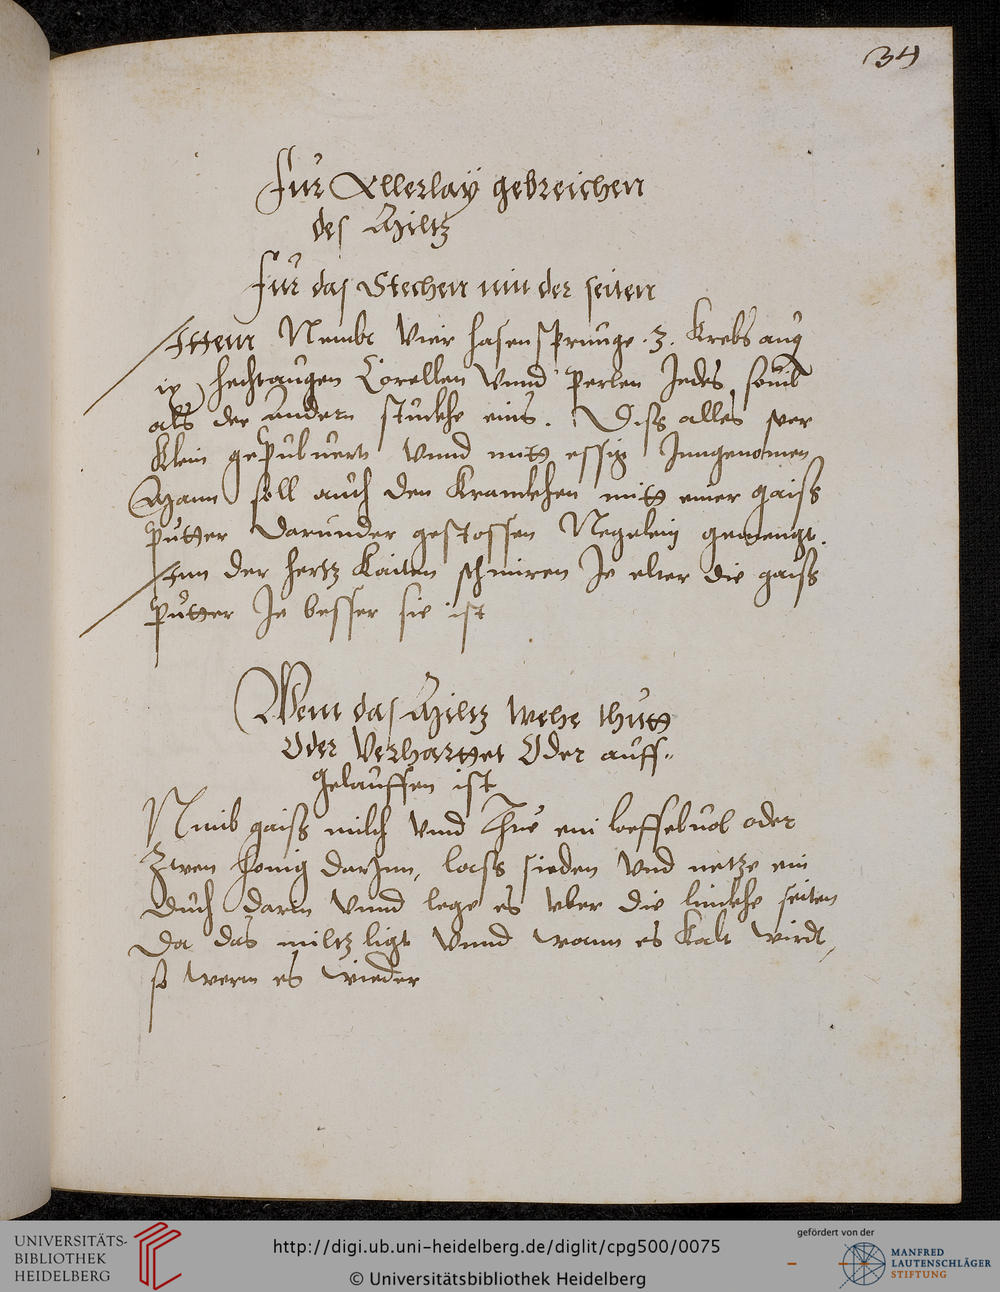 34
Fur Allerlaÿ gebreichen
des Miltz
Fur das Stechen inn der seitenn
Ittem Nembt Vier hasensprunge .3. Krebs aug
ix hechtaugen Corellen Vnnd perlen Jedes souil
als der andern stuckhe eins. Diß alles seer
klein gepuluert vnnd mitt essig Inngenomen
Mann soll auch den Krannckhen mitt einer gaiß
putter darunder gestossen Negelein gemengt.
Inn der hertz kaiten schmiren Je elter die gaiß
putter Je besser sie ist
Wem das Miltz wehe thutt
Oder Verharttet Oder auff-
gelauffen ist
Nimb gaiß milch Vnnd Thue ein loeffeluol oder
Zwen honig darInn, lass sieden Vnd netze ein
duch darin Vnnd lege es vber die linckhe seiten
da das miltz ligt Vnnd wann es kalt wirdt,
so werm es wieder
UNIVERSITÄTS-
BIBLIOTHEK
HEIDELBERG
http://digi.ub.uni-heidelberg.de/diglit/cpg500/0075
© Universitätsbibliothek Heidelberg
gefördert von der
MANFRED
LAUTENSCHLÄGER
STIFTUNG